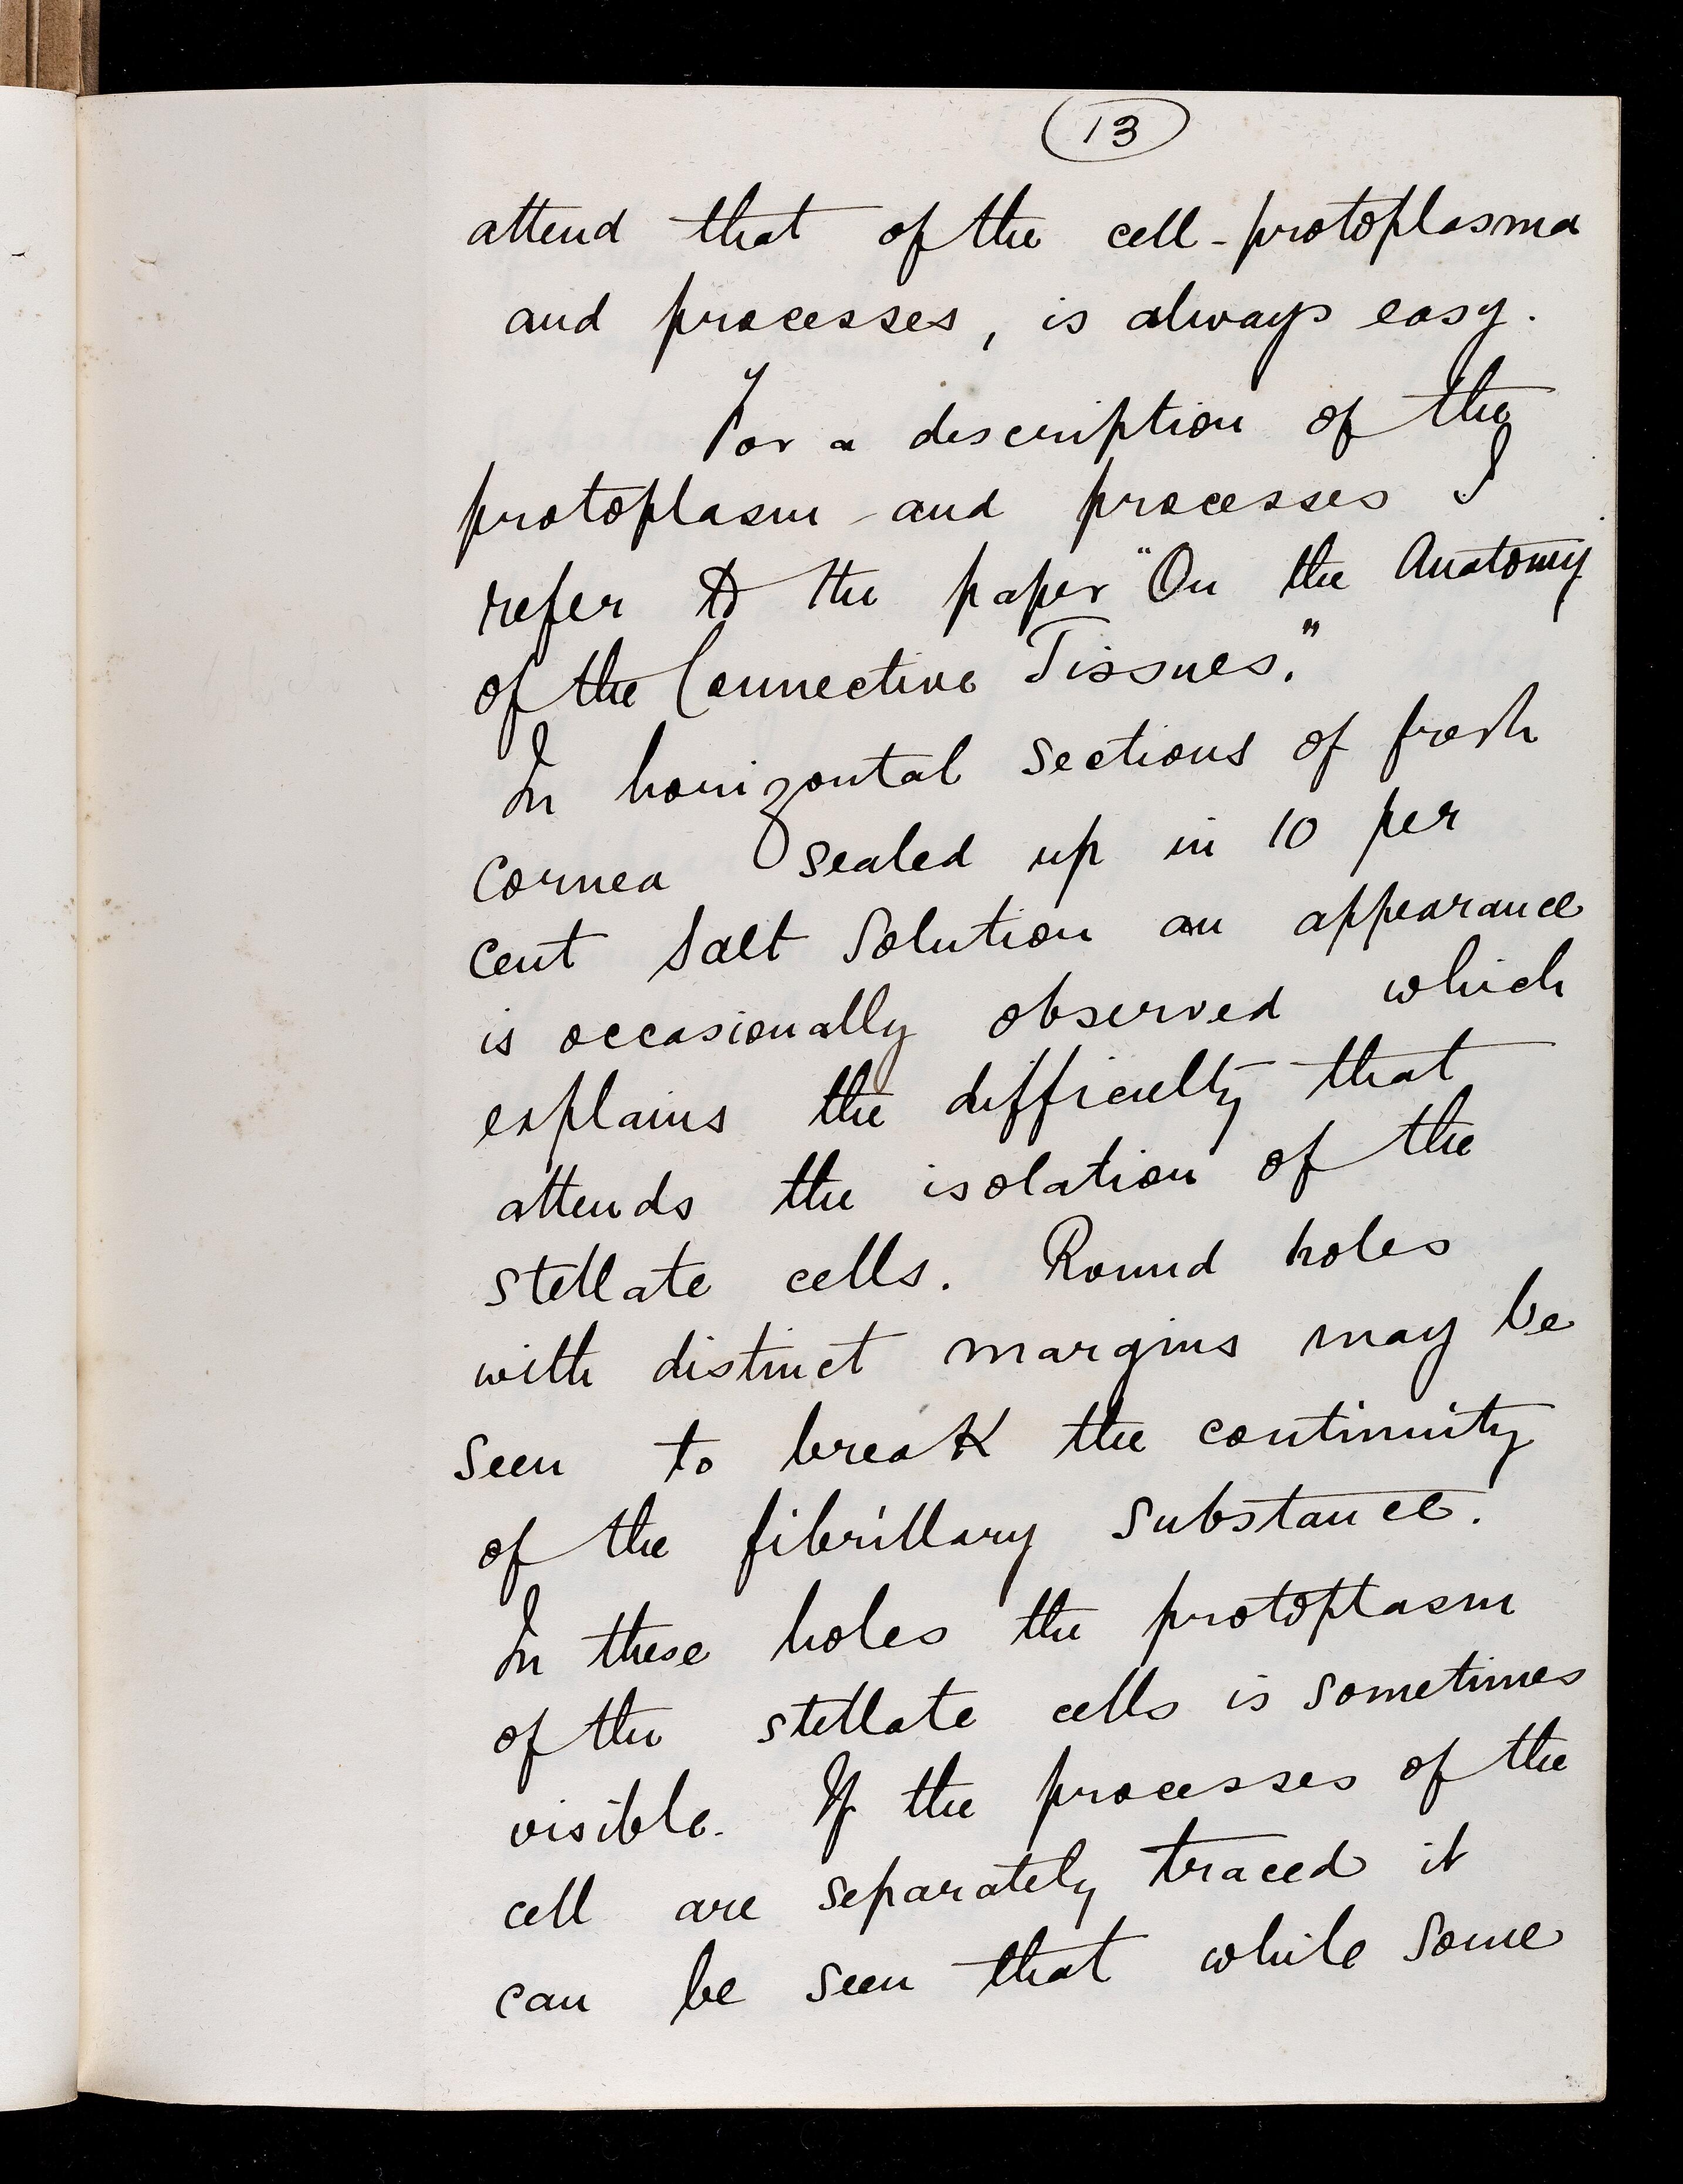 13
attend that of the cell-protoplasma
and processes, is always easy.
For a description of the
protoplasm and processes I
refer to the paper "On the Anatomy
of the Connective Tissues."
In horizontal sections of fresh
Cornea sealed up in 10 per
Cent Salt Solution an appearance
is occasionally observed which
explains the difficulty that
attends the isolation of the
stellate cells. Round holes
with distinct margins may be
seen to break the continuity
of the fibrillary substance.
In these holes the protoplasm
of the stellate cells is sometimes
visible. If the processes of the
cell are separately traced it
can be seen that while some